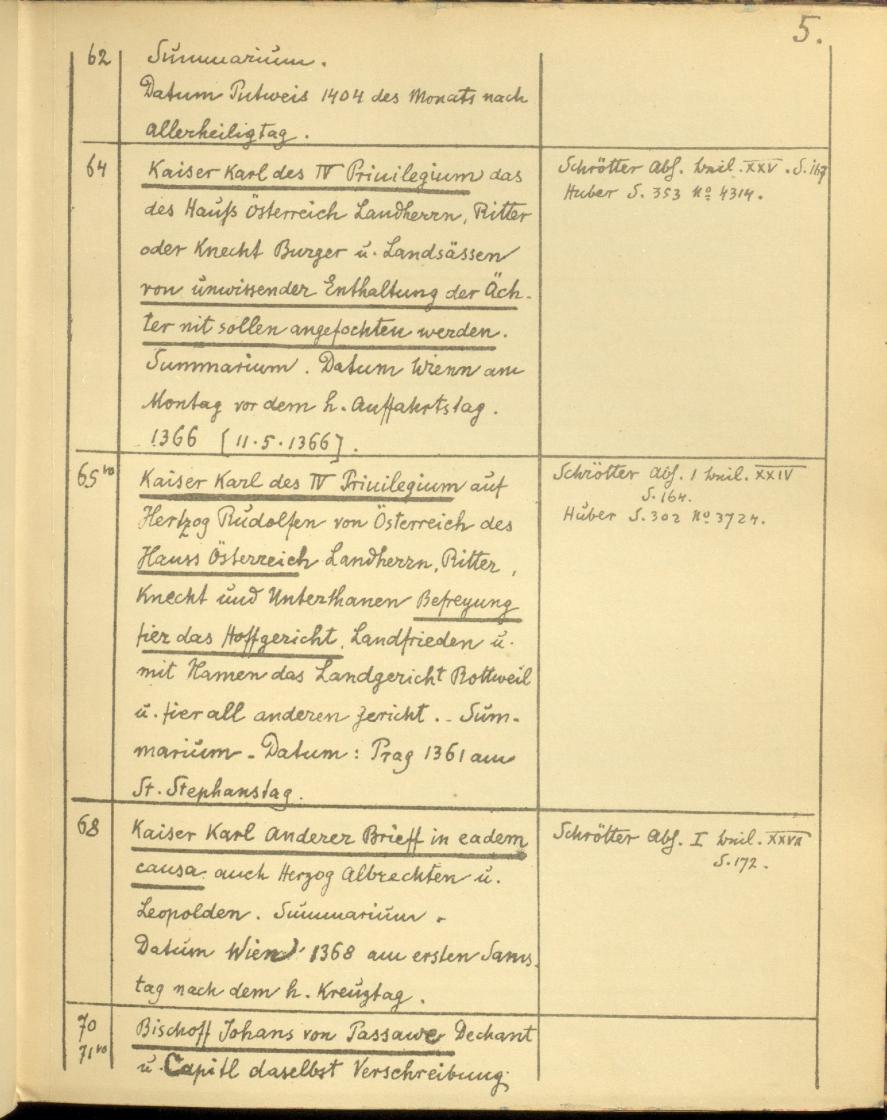 5.
62 Summarium.
Datum Putweis 1404 des Monats nach
Allerheiligtag.
64 Kaiser Karl des IV Priuilegium das
des Hauß Österreich Landherrn, Ritter
oder Knecht Burger u. Landsässen
von unwissender Enthaltung der Äch-
ter nit sollen angefochten werden.
Summarium. Datum Wienn am
Montag vor dem h. Auffahrtstag.
1366 [11.5.1366].
Schrötter Abh. beil. XXV. S. 167
Huber S. 353 No 4314.
65vo Kaiser Karl des IV Priuilegium auf
Hertzog Rudolfen von Österreich des
Hauss Österreich Landherrn, Ritter,
Knecht und Unterthanen Befreyung
fier das Hoffgericht, Landfrieden u.
mit Namen das Landgericht Rottweil
u. fier all anderen Gericht. - Sum-
marium - Datum: Prag 1361 am
St. Stephanstag.
Schrötter Abh. I beil. XXIV
S. 164.
Huber S. 302 No 3724.
68 Kaiser Karl Anderer Brieff in eadem
causa auch Herzog Albrechten u.
Leopolden. Summarium.
Datum Wien 1368 am ersten Sams-
tag nach dem h. Kreuztag.
Schrötter Abh. I beil.
S. 172.
70 Bischoff Johans von Passawe Dechant
71vo u. Capitl daselbst Verschreibung